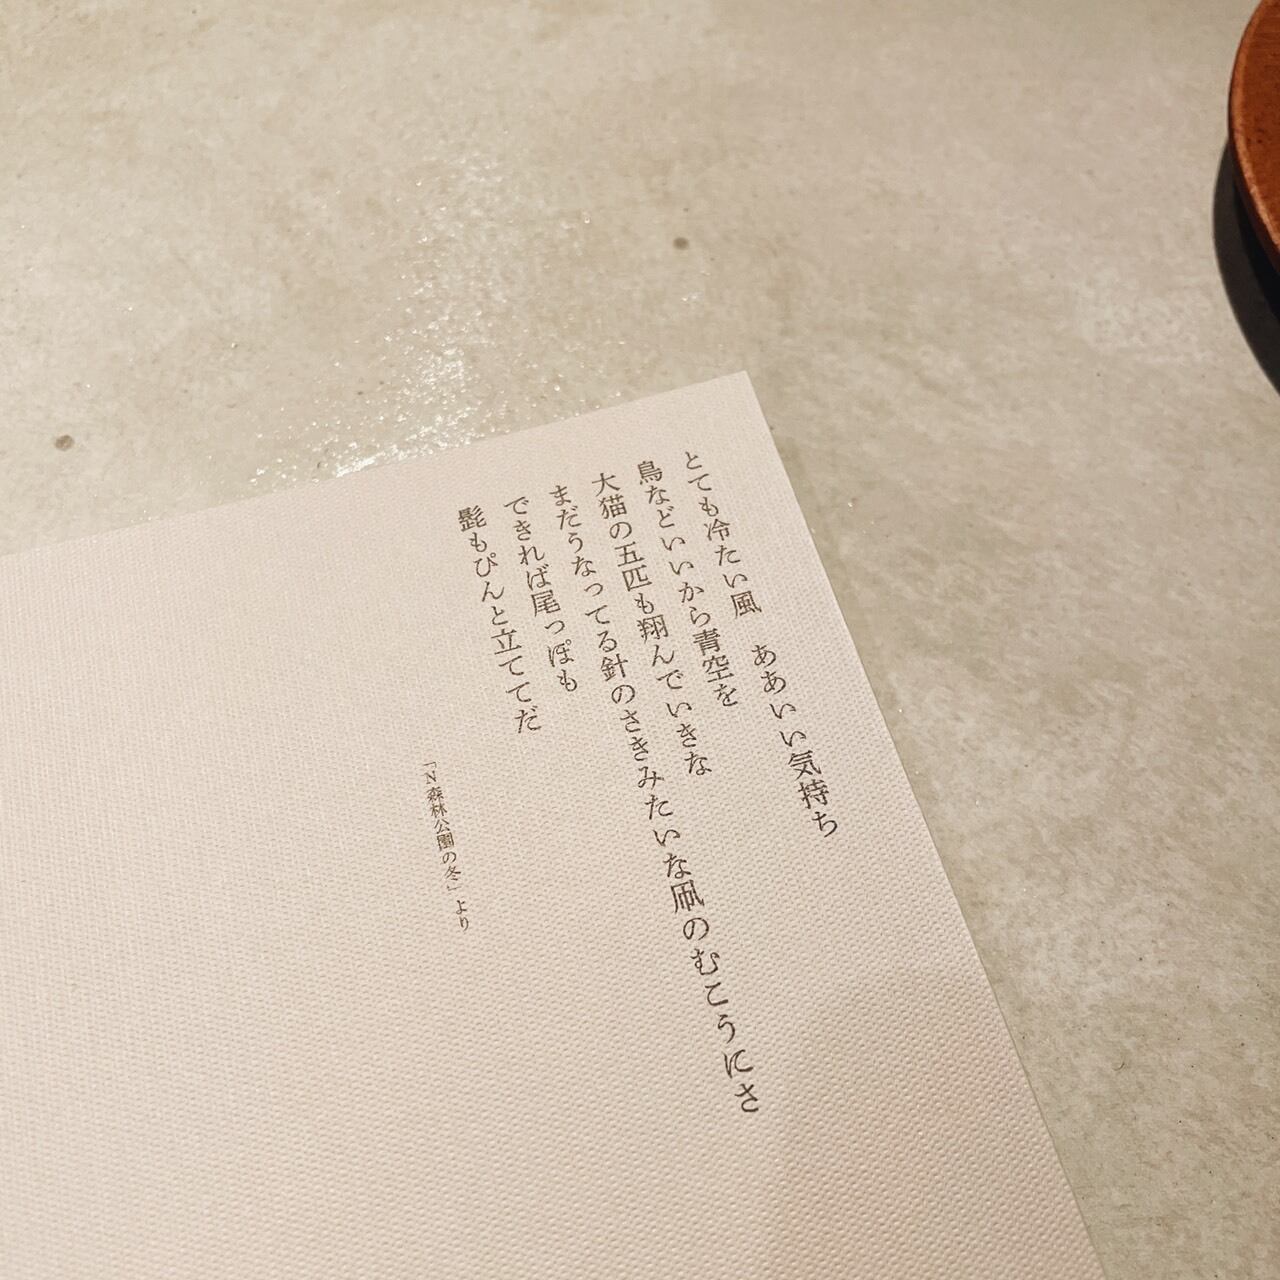 とても冷たい風　ああいい気持ち
鳥などいいから青空を
大猫の五匹も翔んでいきな
まだうなってる針のさきみたいな凧のむこうにさ
できれば尾っぽも
髭もぴんと立ててだ
「N森林公園の冬」より